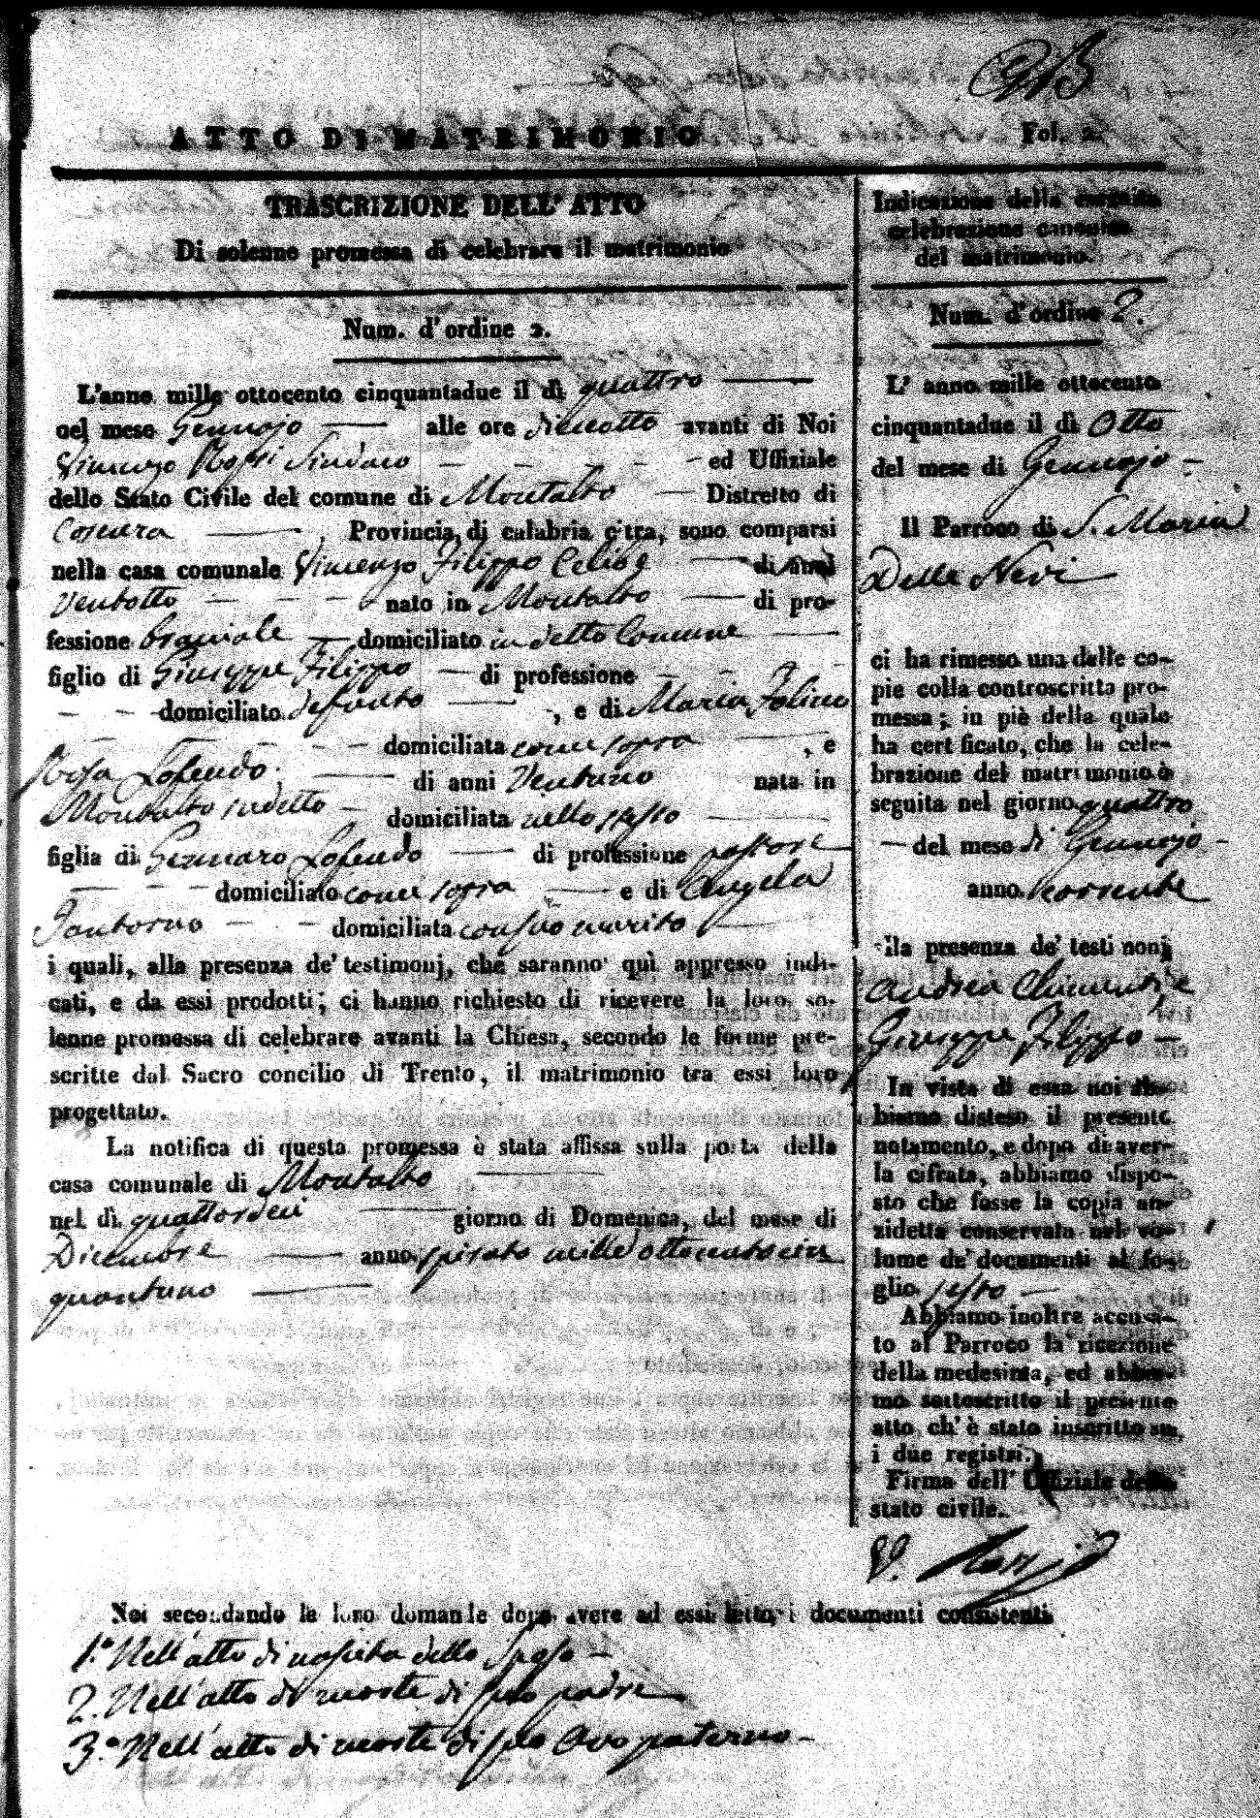 ATTO DI MATRIMONIO
Fol. 2.
TRASCRIZIONE DELL' ATTO
Di solenne promessa di celebrare il matrimonio
Num. d'ordine 2.
L'anno mille ottocento cinquantadue il dì quattro
nel mese Gennajo alle ore diecotto avanti di Noi
Vincenzo Rossi Sindaco ed Uffiziale
dello Stato Civile del comune di Montalto Distretto di
Cosenza Provincia di calabria citra, sono comparsi
nella casa comunale Vincenzo Filippo Celibe di anni
Ventotto nato in Montalto di pro-
fessione braciale domiciliato in detto Comune
figlio di Giuseppe Filippo di professione
domiciliato defunto , e di Maria Folino
domiciliata come sopra , e
Rosa Lofendo di anni Ventuno nata in
Montalto sudetto domiciliata nello stesso
figlia di Gennaro Lofendo di professione pastore
domiciliato come sopra e di Angela
Santorno domiciliata con suo marito
i quali, alla presenza de' testimonj, che saranno quì appresso indi-
cati, e da essi prodotti; ci hanno richiesto di ricevere la loro so-
lenne promessa di celebrare avanti la Chiesa, secondo le forme pre-
scritte dal Sacro concilio di Trento, il matrimonio tra essi loro
progettato.
La notifica di questa promessa è stata affissa sulla porta della
casa comunale di Montalto
nel dì quattordeci giorno di Domenica, del mese di
Dicembre anno spirato mille ottocentocin
quantuno
Indicazione della eseguita
celebrazione canonica
del matrimonio.
Num. d'ordine 2.
L' anno mille ottocento
cinquantadue il dì Otto
del mese di Gennajo
Il Parroco di S. Maria
Delle Nevi
ci ha rimesso una delle co-
pie colla controscritta pro-
messa; in piè della quale
ha certificato, che la cele-
brazione del matrimonio è
seguita nel giorno quattro
del mese di Gennajo
anno corrente
alla presenza de' testi nonj
Andrea Chimenti, e
Giuseppe Filippo
In vista di essa noi ab-
biamo disteso il presente
notamento, e dopo di aver-
la cifrata, abbiamo dispo-
sto che fosse la copia an-
zidetta conservata nel vo-
lume de' documenti al fo-
glio sesto
Abbiamo inoltre accusa-
to al Parroco la ricezione
della medesima, ed abbia-
mo sottoscritto il presente
atto ch' è stato inscritto su
i due registri.
Firma dell' Uffiziale dello
stato civile.
V. Rossi
Noi secondando le loro domande dopo avere ad essi letto i documenti consistenti
1.° Nell'atto di nascita dello Sposo
2. Nell'atto di morte di suo padre
3.° Nell'atto di morte di suo Avo paterno